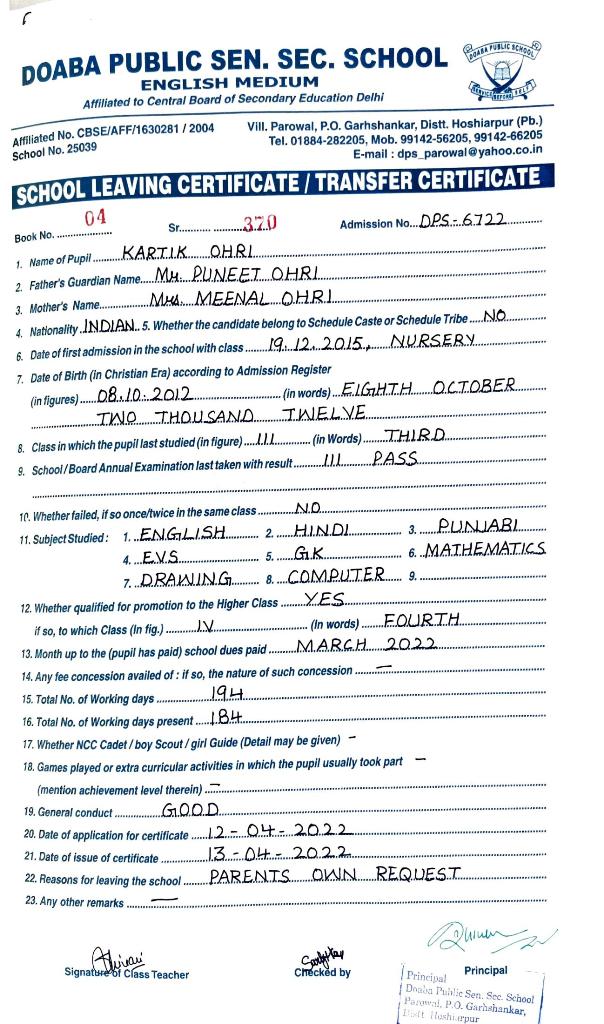 DOABA PUBLIC SEN. SEC. SCHOOL
ENGLISH MEDIUM
Affiliated to Central Board of Secondary Education Delhi
DOABA PUBLIC SCHOOL
SERVICE BEFORE SELF
Affiliated No. CBSE/AFF/1630281 / 2004
School No. 25039
Vill. Parowal, P.O. Garhshankar, Distt. Hoshiarpur (Pb.)
Tel. 01884-282205, Mob. 99142-56205, 99142-66205
E-mail : dps_parowal@yahoo.co.in
SCHOOL LEAVING CERTIFICATE / TRANSFER CERTIFICATE
Book No. 04 Sr. 370 Admission No. DPS-6722
1. Name of Pupil KARTIK OHRI
2. Father's Guardian Name Mr. PUNEET OHRI
3. Mother's Name Mrs. MEENAL OHRI
4. Nationality INDIAN 5. Whether the candidate belong to Schedule Caste or Schedule Tribe NO
6. Date of first admission in the school with class 19.12.2015, NURSERY
7. Date of Birth (in Christian Era) according to Admission Register
(in figures) 08.10.2012 (in words) EIGHTH OCTOBER
TWO THOUSAND TWELVE
8. Class in which the pupil last studied (in figure) III (in Words) THIRD
9. School / Board Annual Examination last taken with result III PASS
10. Whether failed, if so once/twice in the same class NO
11. Subject Studied : 1. ENGLISH 2. HINDI 3. PUNJABI
4. EVS 5. GK 6. MATHEMATICS
7. DRAWING 8. COMPUTER 9.
12. Whether qualified for promotion to the Higher Class YES
if so, to which Class (In fig.) IV (In words) FOURTH
13. Month up to the (pupil has paid) school dues paid MARCH 2022
14. Any fee concession availed of : if so, the nature of such concession —
15. Total No. of Working days 194
16. Total No. of Working days present 184
17. Whether NCC Cadet / boy Scout / girl Guide (Detail may be given) –
18. Games played or extra curricular activities in which the pupil usually took part –
(mention achievement level therein) –
19. General conduct GOOD
20. Date of application for certificate 12-04-2022
21. Date of issue of certificate 13-04-2022
22. Reasons for leaving the school PARENTS OWN REQUEST
23. Any other remarks —
Signature of Class Teacher Checked by Principal
Principal
Doaba Public Sen. Sec. School
Parowal, P.O. Garhshankar,
Distt. Hoshiarpur